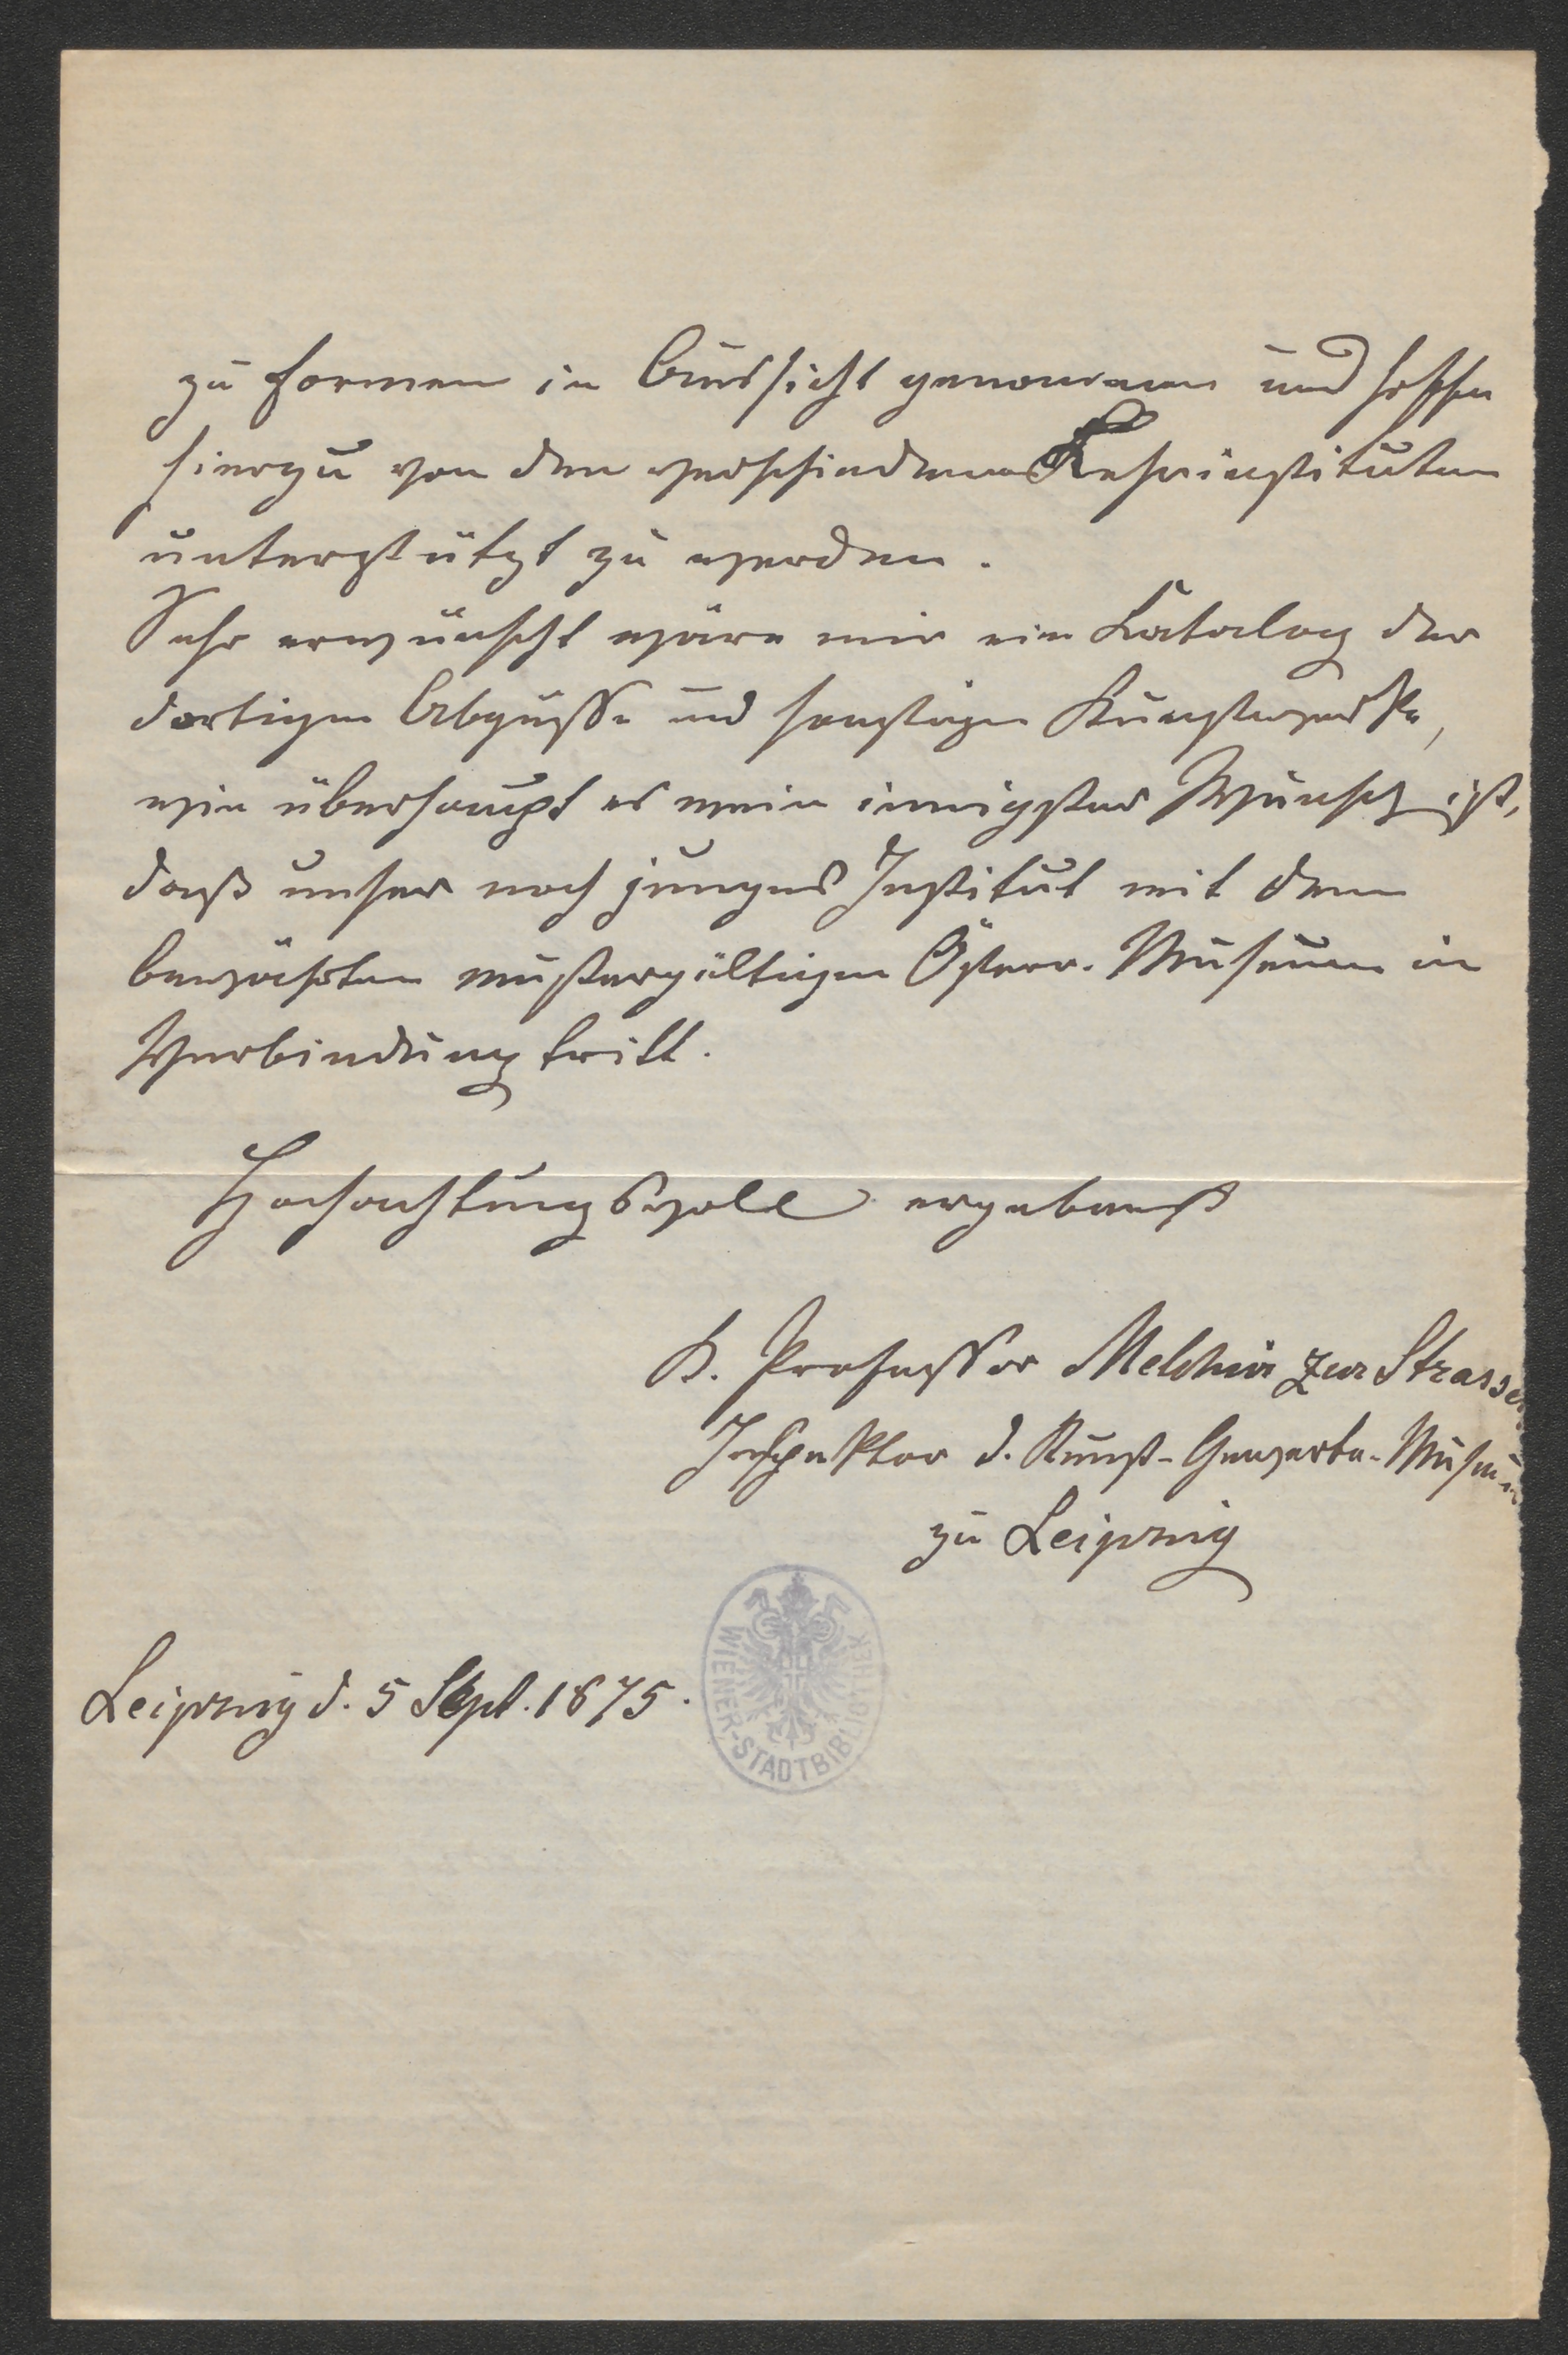 zu formen in Aussicht genommen und hoffen
hierzu von den verschiedenen Lehrinstituten
unterstützt zu werden.
Sehr erwünscht wäre mir ein Katalog der
dortigen Abgüsse und sonstigen Kunstwerke,
wie überhaupt es mein innigster Wunsch ist,
daß unser noch junges Institut mit dem
bewährten mustergültigen Österr. Museum in
Verbindung tritt.
Hochachtungsvoll ergebenst
K. Professor Melchior zur Strassen
Inspektor d. Kunst-Gewerbe-Museum
zu Leipzig
Leipzig d. 5 Sept. 1875.
WIENER-STADTBIBLIOTHEK